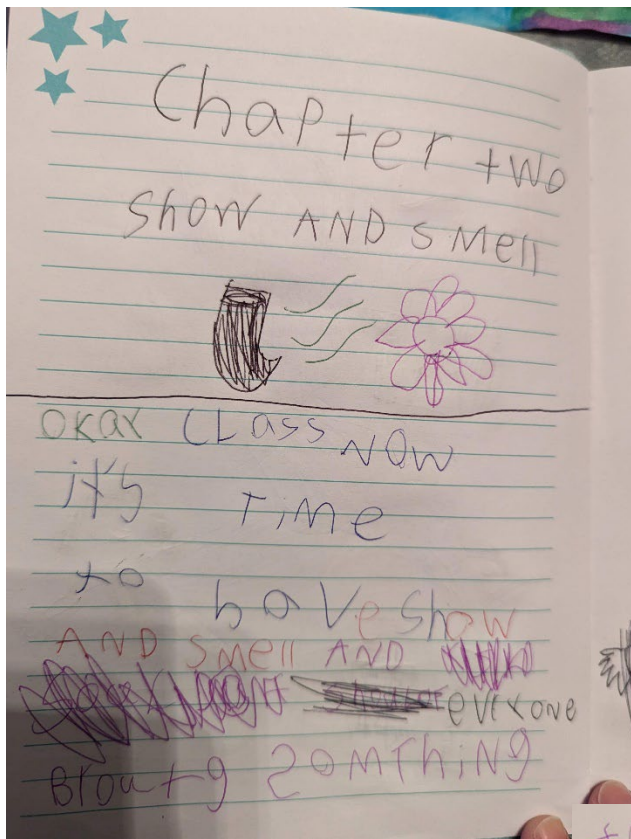 Chapter two
Show AND smell
okay CLass NOW
it's TiMe
to have Show
AND Smell AND
everyone
Broutg SOMThiNg